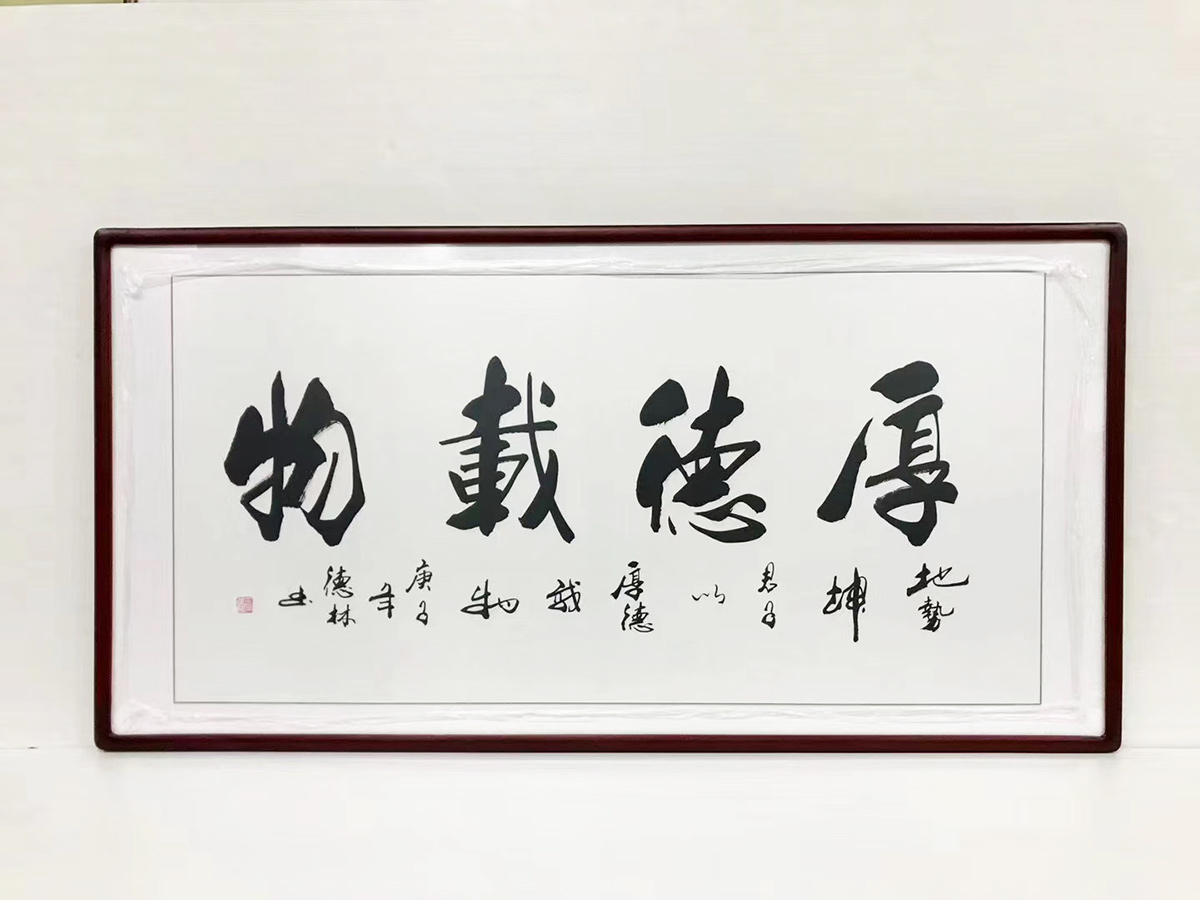 厚德載物
地勢坤君子以厚德載物庚子年德林书